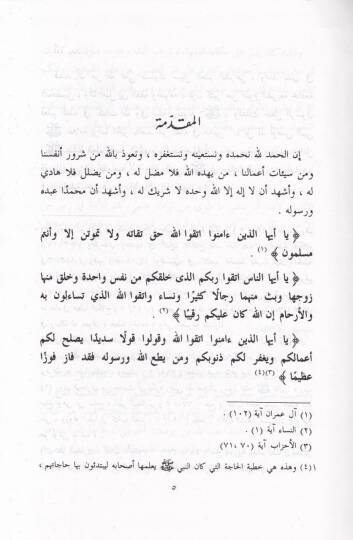 المقدّمة
إن الحمد لله نحمده ونستعينه ونستغفره ، ونعوذ بالله من شرور أنفسنا
ومن سيئات أعمالنا ، من يهده الله فلا مضل له ، ومن يضلل فلا هادي
له ، وأشهد أن لا إله إلا الله وحده لا شريك له ، وأشهد أن محمدًا عبده
ورسوله .
﴿ يا أيها الذين ءامنوا اتقوا الله حق تقاته ولا تموتن إلا وأنتم
مسلمون ﴾ (١) .
﴿ يا أيها الناس اتقوا ربكم الذى خلقكم من نفس واحدة وخلق منها
زوجها وبث منهما رجالًا كثيرًا ونساء واتقوا الله الذي تساءلون به
والأرحام إن الله كان عليكم رقيبًا ﴾ (٢) .
﴿ يا أيها الذين ءامنوا اتقوا الله وقولوا قولًا سديدًا يصلح لكم
أعمالكم ويغفر لكم ذنوبكم ومن يطع الله ورسوله فقد فاز فوزًا
عظيمًا ﴾ (٣)(٤)
(١) آل عمران آية (١٠٢) .
(٢) النساء آية (١) .
(٣) الأحزاب آية (٧٠ ،٧١)
(٤) وهذه هي خطبة الحاجة التي كان النبي ﷺ يعلمها أصحابه ليبتدئون بها حاجاتهم ،
٥